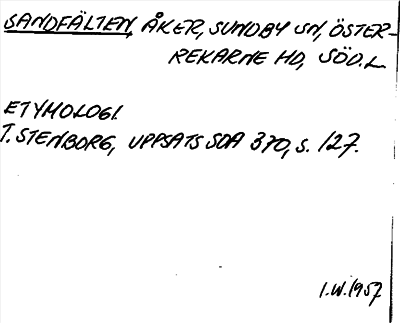 SANDFÄLTEN, ÅKER, SUNDBY SN, ÖSTER-
REKARNE HD, SÖD.L.
ETYMOLOGI.
T. STENBORG, UPPSATS SOA 370, S. 127.
I.W. 1957